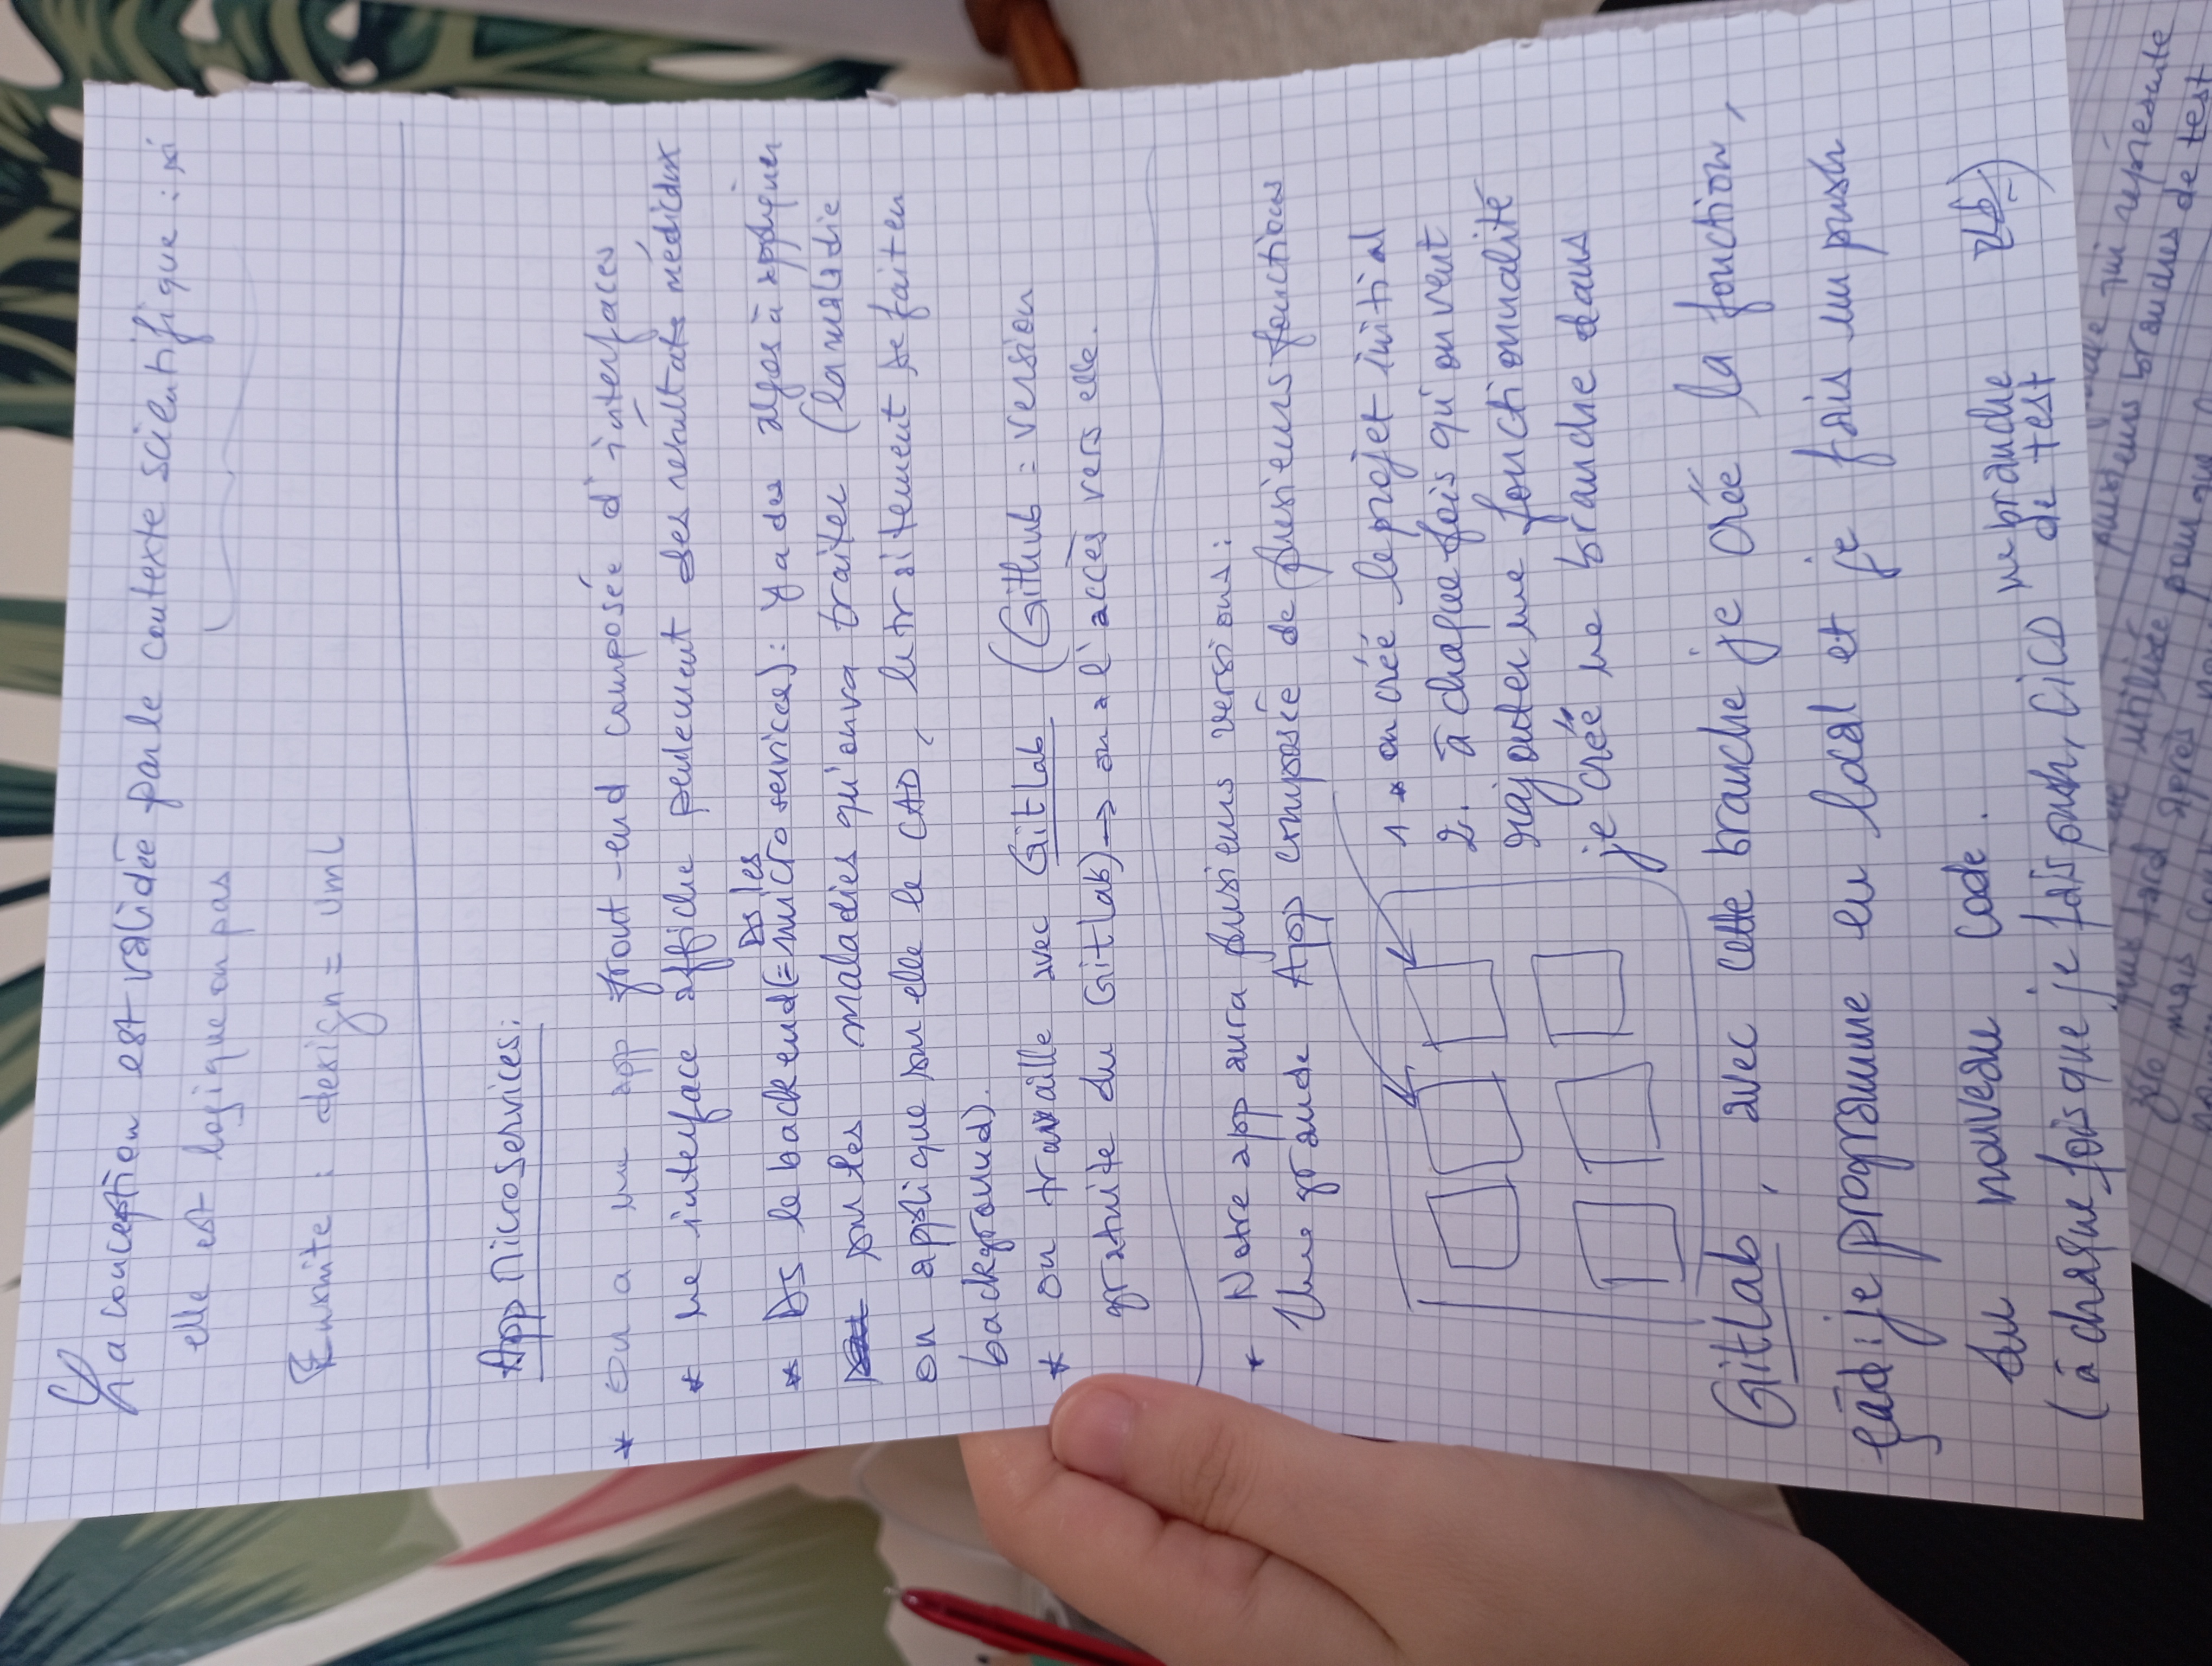 La conception est validée par le contexte scientifique : si
elle est logique ou pas
Ensuite : design = uml
App Microservices:
* On a une app front-end composée d'interfaces
* une interface affiche seulement des résultats médicaux
Ds les
* Ds le backend (= microservices) : Ya des algos à appliquer
sur les maladies qu'on va traiter (la maladie
on applique sur elle le CAD, le traitement se fait en
background).
* on travaille avec GitLab (Github = version
gratuite du GitLab) → on a l'accès vers elle.
* Notre app aura plusieurs versions :
Une grande App composée de plusieurs fonctions
1 * on créé le projet initial
2. à chaque fois qu'on veut
rajouter une fonctionnalité
je créé une branche dans
GitLab, avec cette branche je créé la fonction,
çàd : je programme en local et je fais un push
du nouveau code.
(à chaque fois que je fais push, CiCD une branche
de test
qui représente
plusieurs branches de test
utilisée pour que
plus tard après
zéro mais